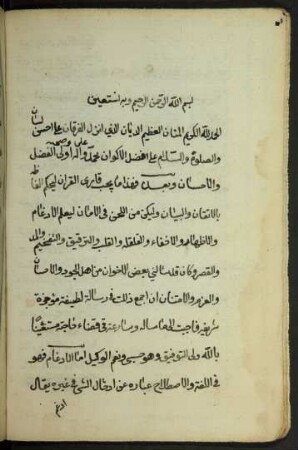 بسم الله الرحمن الرحيم وبه نستعين
الحمد لله الكريم المنان العظيم الديان الذي انزل الفرقان على احسن لسان
والصلوة والسلام على افضل الاكوان محمد وعلى اله وصحبه اولي الفضل
والاحسان وبعد فهذا ما يجب قارئ القران ليحكم الفاظه
بالاتقان والبيان وليكن من اللحن في الامان ليعلم الادغام
والاظهار والاخفاء والقلقلة والقلب والترقيق والتفخيم والمد
والقصر وكان قد سألني بعض الاخوان من اهل الجود والاحسان
والعز والامتنان ان اجمع ذلك في رسالة لطيفة موجزة
شريفة فاجبت الى ما سأله وسارعت في قضاء حاجته مستعينا
بالله ولي التوفيق وهو حسبي ونعم الوكيل اما الادغام فهو
في اللغة والاصطلاح عبارة عن ادخال الشئ في غيره يقال
ادغم